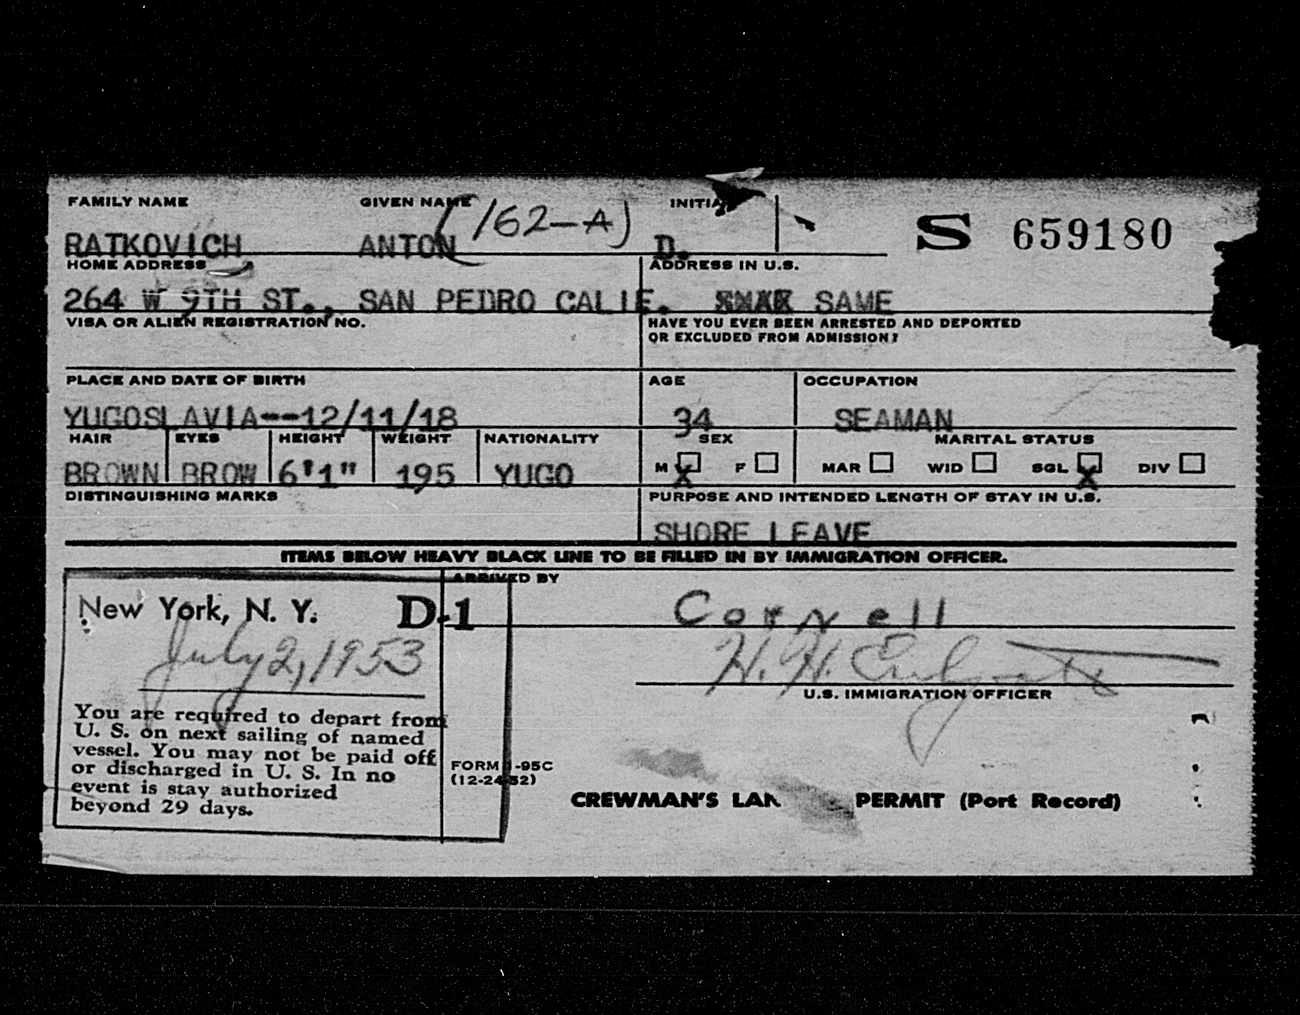 FAMILY NAME GIVEN NAME INITIAL
(162-A)
S 659180
RATKOVICH ANTON D.
HOME ADDRESS ADDRESS IN U.S.
264 W 9TH ST., SAN PEDRO CALIF. SAME
VISA OR ALIEN REGISTRATION NO. HAVE YOU EVER BEEN ARRESTED AND DEPORTED
OR EXCLUDED FROM ADMISSION?
PLACE AND DATE OF BIRTH AGE OCCUPATION
YUGOSLAVIA--12/11/18 34 SEAMAN
HAIR EYES HEIGHT WEIGHT NATIONALITY SEX MARITAL STATUS
M X F MAR WID SGL X DIV
BROWN BROW 6'1" 195 YUGO
DISTINGUISHING MARKS PURPOSE AND INTENDED LENGTH OF STAY IN U.S.
SHORE LEAVE
ITEMS BELOW HEAVY BLACK LINE TO BE FILLED IN BY IMMIGRATION OFFICER.
ARRIVED BY
New York, N. Y. D-1 Cornell
July 2, 1953 H. H.
U.S. IMMIGRATION OFFICER
You are required to depart from
U. S. on next sailing of named
vessel. You may not be paid off
or discharged in U. S. In no
event is stay authorized
beyond 29 days.
FORM I-95C
(12-24-52)
CREWMAN'S LAN PERMIT (Port Record)